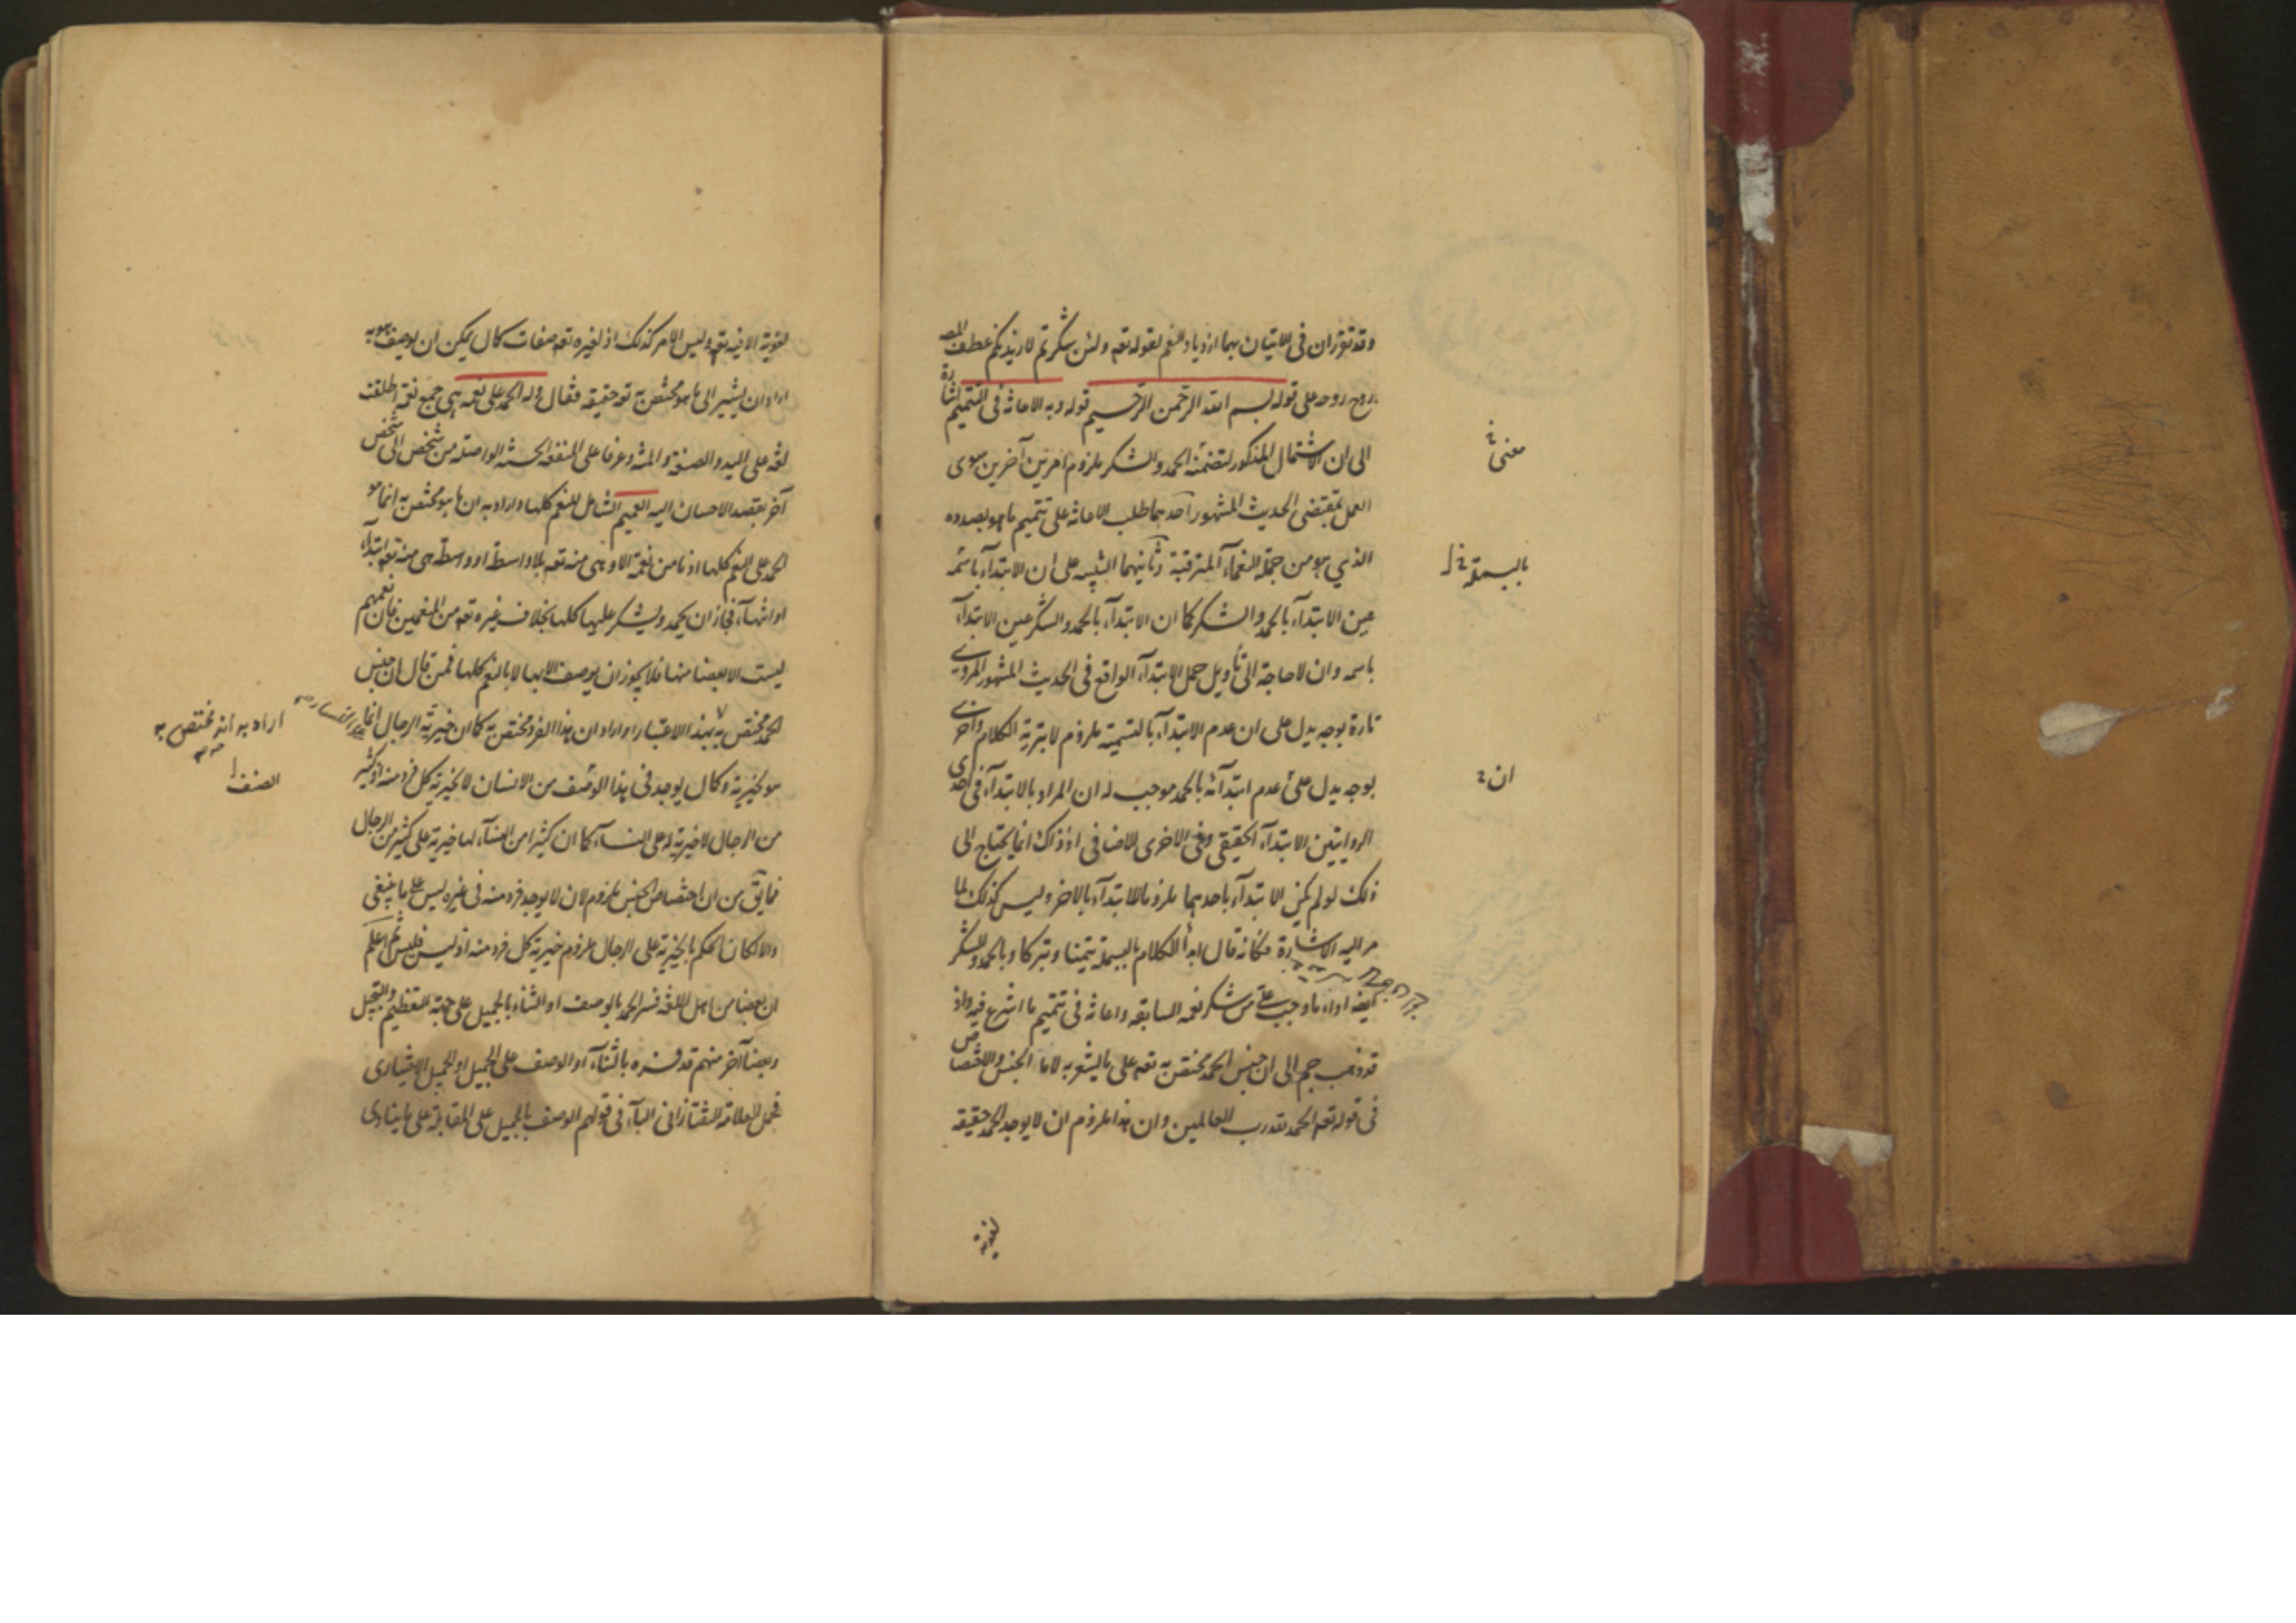 وقد تقرر ان فى الاتيان بهما ازدياد النعم لقوله تعه ولئن شكرتم لازيدنكم عطف المصـ
روح روحه على قوله بسم الله الرحمن الرحيم قوله وبه الاعانة فى التتميم اشارة
الى ان الاشتمال المذكور لتضمنه الحمد والشكر ملزوم امرين آخرين سوى
معنى
العمل بمقتضى الحديث المشهور احدهما طلب الاعانة على تتميم ما هو بصدده
الذي هو من جملة النعماء المترقبة وثانيهما التنبيه على ان الابتداء باسمه
بالبسملة
عين الابتداء بالحمد والشكر كما ان الابتداء بالحمد والشكر عين الابتداء
باسمه وان لا حاجة الى تأويل حمل الابتداء الواقع فى الحديث المشهور المروى
تارة بوجه يدل على ان عدم الابتداء بالتسمية ملزوم لابترية الكلام واخرى
بوجه يدل على عدم ابتدائه بالحمد موجب له ان المراد بالابتداء فى احدى
ان
الروايتين الابتداء الحقيقى وفى الاخرى الاضافى اذ ذاك انما يحتاج الى
ذلك لو لم يكن الابتداء باحدهما ملزوما للابتداء بالاخر وليس كذلك لما
مر اليه الاشارة فكانه قال ابدأ الكلام بالبسملة تيمنا وتبركا وبالحمد والشكر
ايضا اداء ما وجب على من شكر نعمه السابقه واعانة فى تتميم ما اشرع فيه واذ
قد ذهب جم الى ان جنس الحمد مختص به تعه على ما يشعر به لاما الجنس والاختصاص
فى قوله تعه الحمد لله رب العالمين وان هذا ملزوم ان لا يوجد الحمد حقيقه
لغويه
لغويه الا فيه تعه وليس الامر كذلك اذ لغيره تعه صفات كمال يمكن ان يوصف هو به
اراد ان يشير الى ما هو مختص به تعه حقيقه فقال وله الحمد على نعمه هى جمع نعمة اطلقت
لغه على اليد والصنعة والمنة وعرفا على المنفعه الحسنه الواصله من شخص الى شخص
آخر بقصد الاحسان اليه العميم الشامل للنعم كلها واراد به ان ما هو مختص به انما هو
الحمد على النعم كلها اذ ما من نعمة الا وهى منه تعه بلا واسطة او واسطة هى منه تعه ابتداء
او انتهاء فجاز ان يحمد ويشكر عليها كلها بخلاف غيره تعه من المنعمين فان نعمهم
ليست الا بعضا منها فلا يجوز ان يوصف الا بها لا بالنعم كلها فمن قال ان جنس
الحمد مختص به بهذا الاعتبار او اراد ان هذا الفرد مختص به كما ان خيرية الرجال انما
اراد به انه مختص به
هو لخيرية وكمال يوجد فى هذا الوصف من الانسان لا لخيرية كل فرد منه اذ كثير
الصنف
من الرجال لا خيرية له على النساء كما ان كثيرا من النساء لها خيرية على كثير من الرجال
فما يق من ان اختصاص الجنس ملزوم لان لا يوجد فرد منه فى غيره ليس على ما ينبغى
والا لكان الحكم بالخيرية على الرجال ملزوم خيرية كل فرد منه اذ ليس فليس ثم اعلم
ان بعضا من اهل اللغة فسر الحمد بالوصف او الثناء بالجميل على جهة التعظيم والتبجيل
وبعضا آخر منهم قد فسره بالثناء او الوصف على الجميل او الجميل الاختيارى
فحمل العلامة التفتازانى الباء فى قولهم الوصف بالجميل على المقابلة على ما ينادى